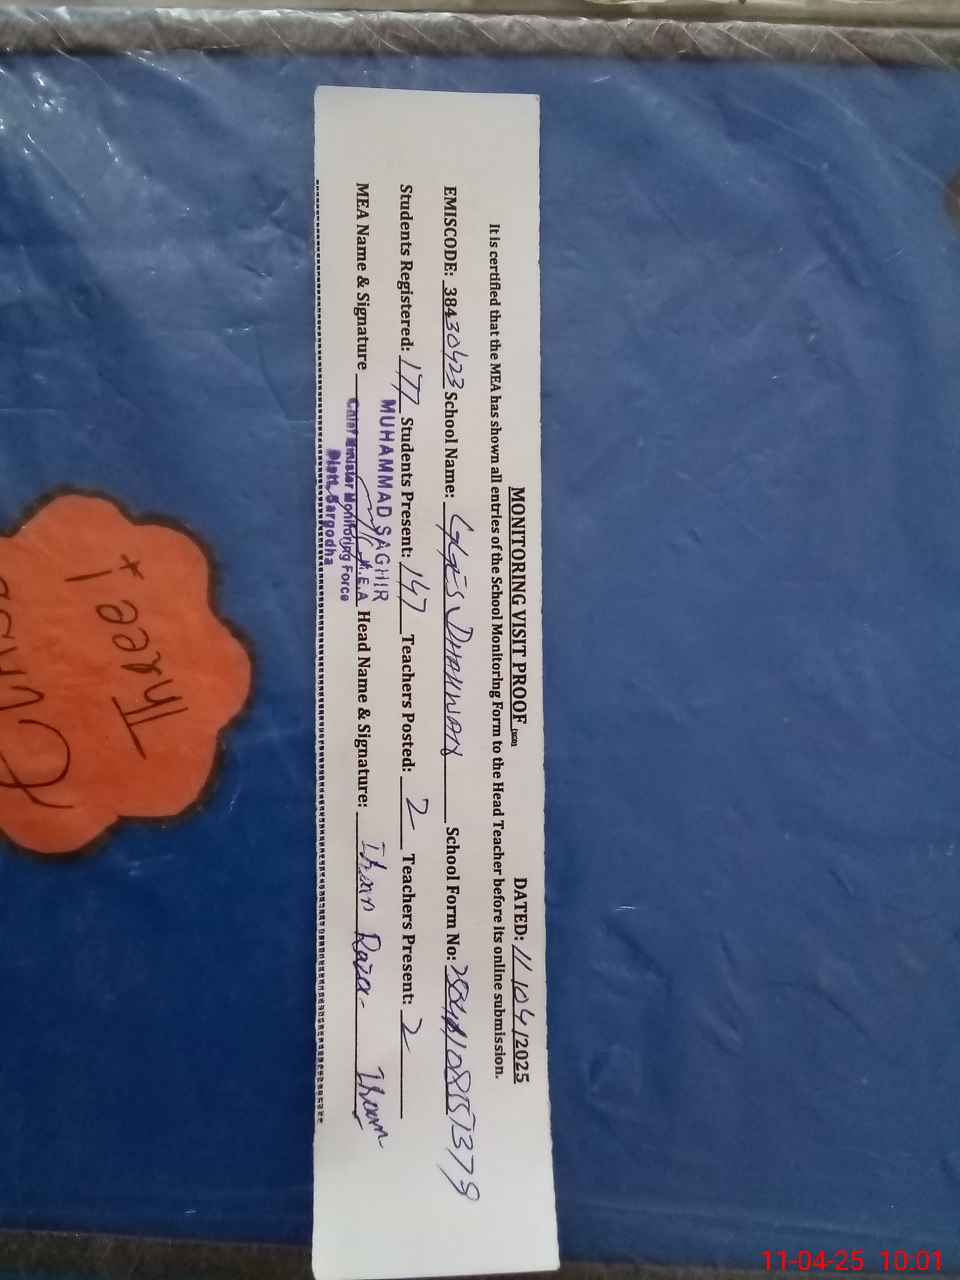 MONITORING VISIT PROOF (SGD) DATED: 11/04/2025
It is certified that the MEA has shown all entries of the School Monitoring Form to the Head Teacher before its online submission.
EMISCODE: 38430423 School Name: GGES DHAHWAN School Form No:
Students Registered: 177 Students Present: 147 Teachers Posted: 2 Teachers Present: 2
MEA Name & Signature Head Name & Signature: Raza
MUHAMMAD SAGHIR
Chief Minister Monitoring Force M.E.A
Distt. Sargodha
Three
11-04-25 10:01